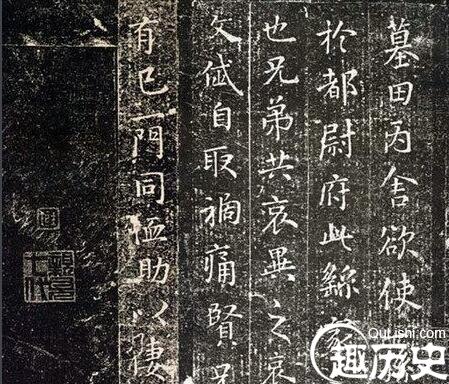 墓田丙舍欲使
於都尉府此繇家
也兄弟共哀異之哀
文岱自取禍痛賢兄
有已一門同恤助以悽
QuLishi.com
趣历史